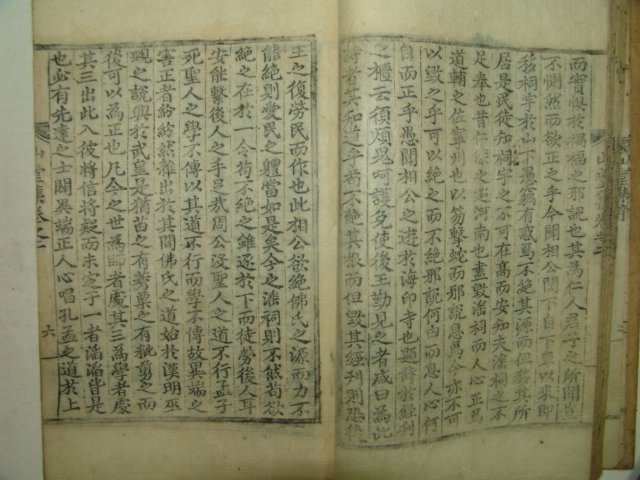 而實惧於禍福之邪說也其為仁人君子之所閔
不惻然而欲正之乎今閤相公閤下自下車以來即
移祠宇於山下愚竊有惑焉不絶其源而但移其所
居是民徒知祠宇之不可在髙而安知夫滛祠之不
足奉也昔仁傑之巡河南也盡毀滛祠而人心正焉
道輔之佐寧州也以笏擊蛇而邪說息焉今亦不可
以毀之乎可以絶之而不絶邪說何由而息人心何
自而正乎愚聞相公之遊於海印寺也題詩於經刋
之櫃云須煩鬼呵護免使後王勤見之者咸曰為此
詩者其知道乎若不絶其根而但毀其經刋則恐後
王之復勞民而作也此相公欲絶佛氏之源而力不
能絶則愛民之軆當如是矣今之滛祠則不然苟欲
絶之在於一令苟不絶之雖逐於下而徒勞後人耳
安能繫後人之手足哉周公沒聖人之道不行孟子
死聖人之學不傳以其道不行而學不傳故異端之
害正者紛紛然雜出於其間佛氏之道始於漢明巫
覡之說興於武皇是猶苗之有莠粟之有秕剪之而
後可以為正也凡今之世為師者處其三為學者處
其三出此入彼將信將疑而未定于一者滔滔皆是
也必有先達之士闢異端正人心唱孔孟之道於上
山堂集卷之一
六